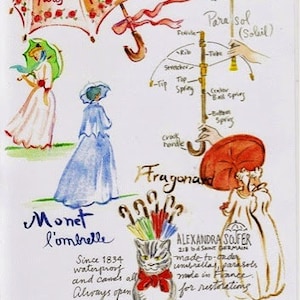 Paris
Parasol
(Soleil)
Ferrule
Rib
Tube
Stretcher
Tip
Top
Spring
Center
Ball Spring
Bottom
Spring
Crook
handle
Fragonard
Monet
l'ombrelle
ALEXANDRA SOJFER
218 bd Saint GERMAIN
Since 1834
waterproof
and canes all
Always open
made-to-order
umbrellas, parasols
made in France
for restorations